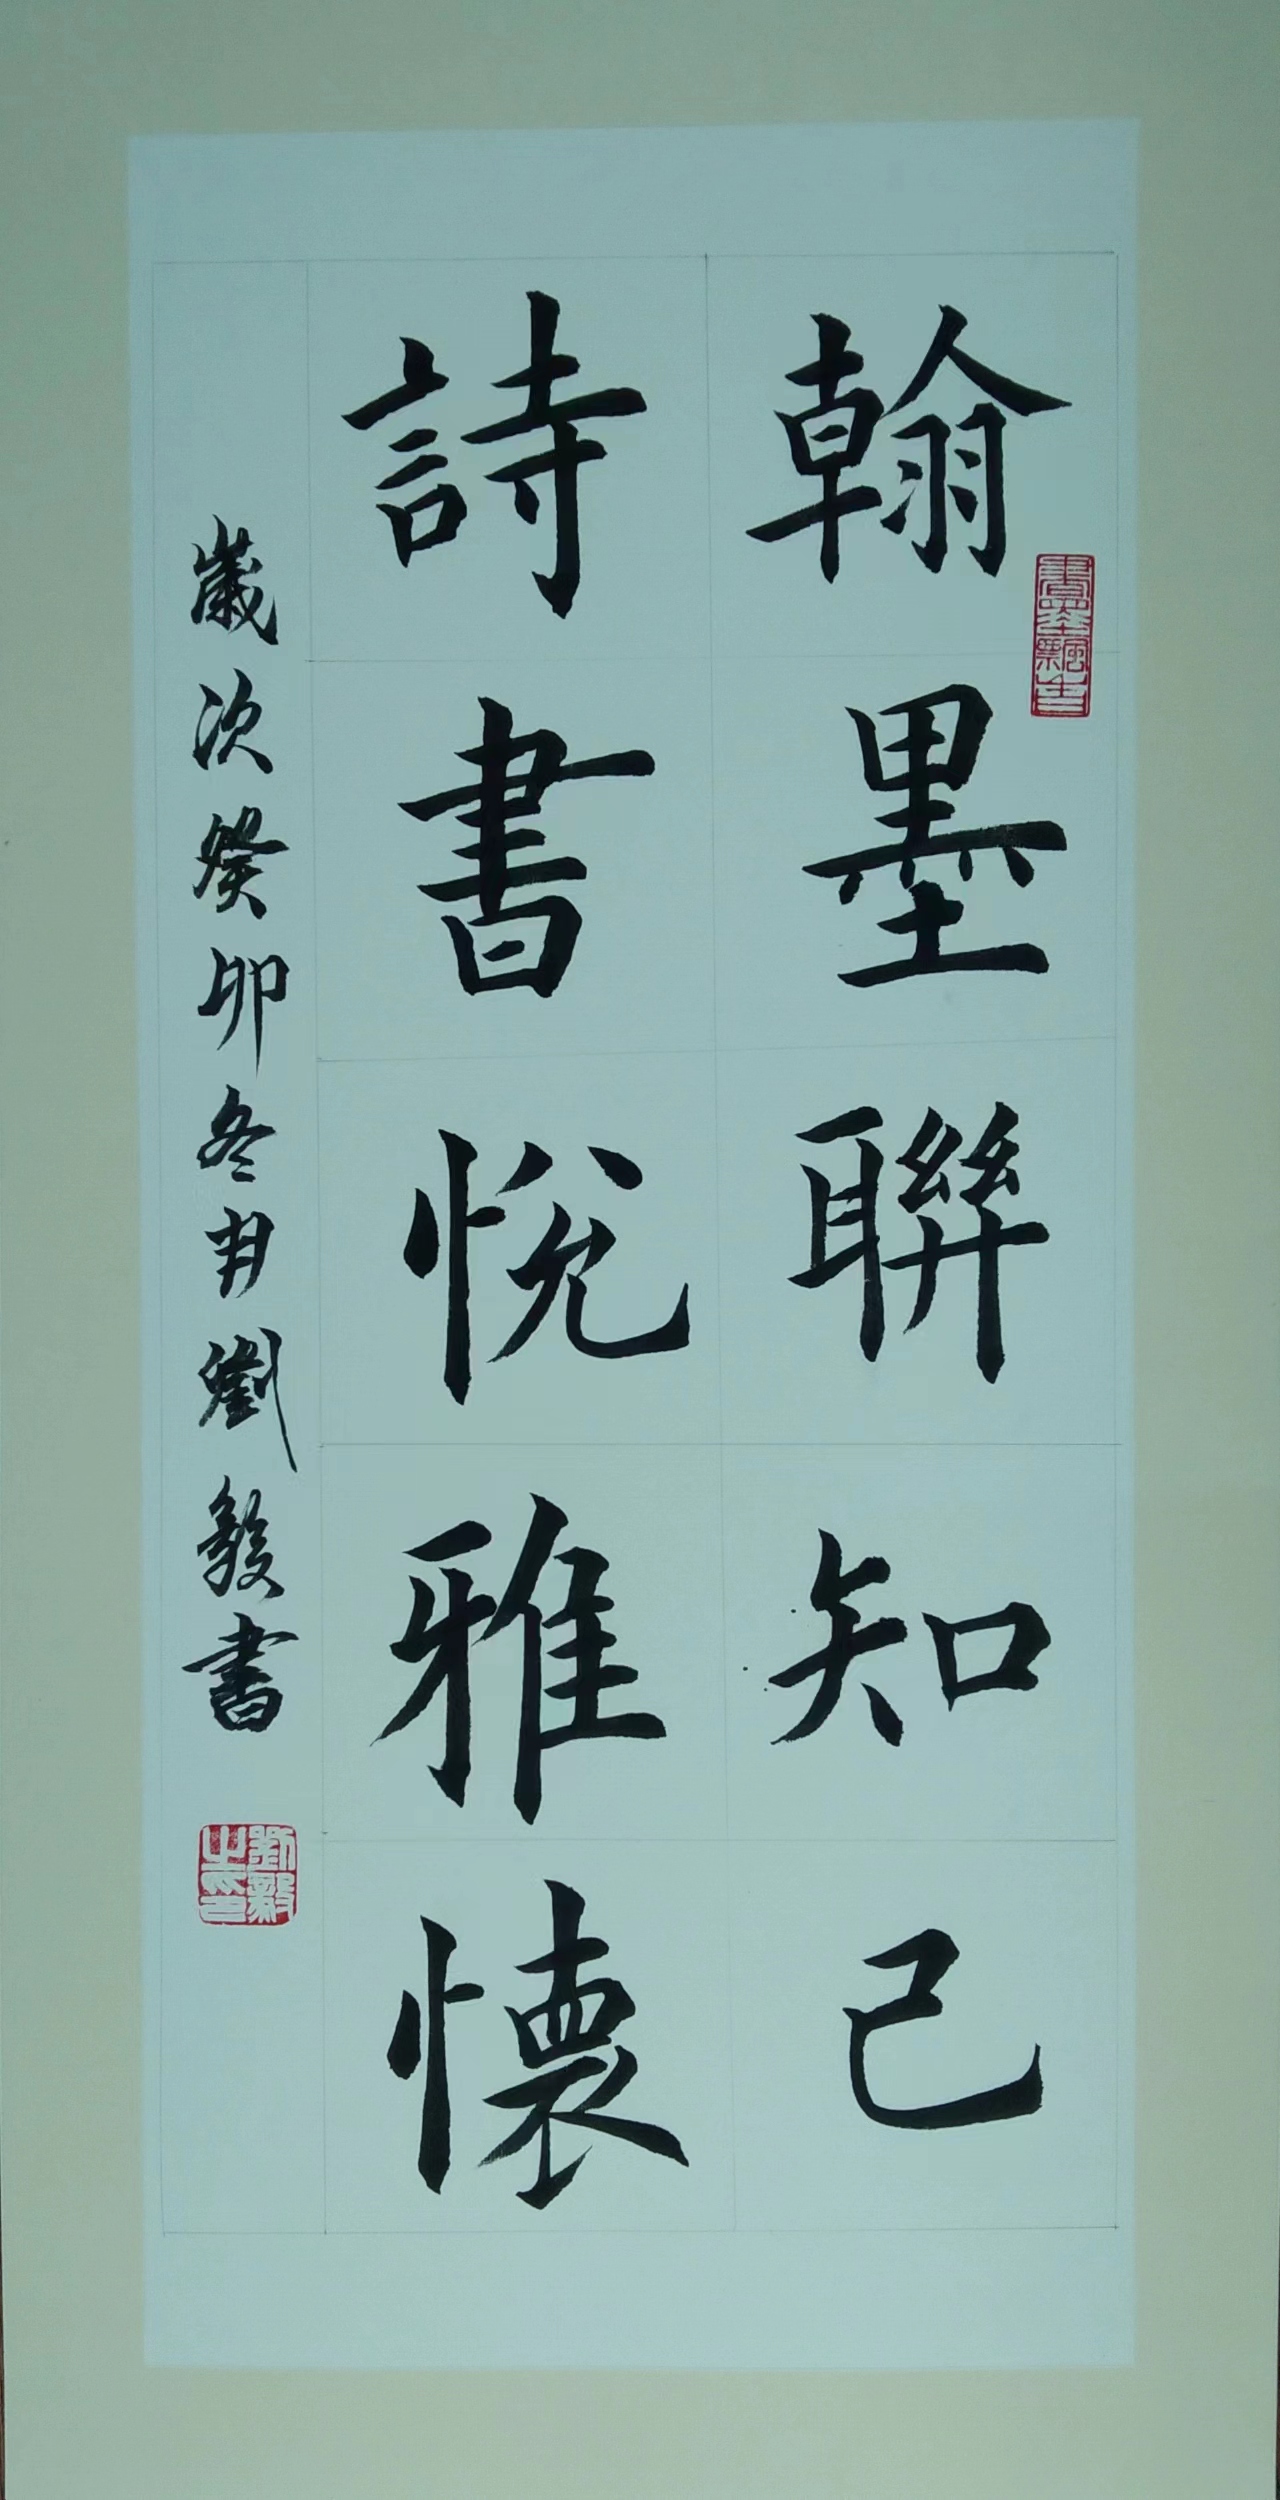 翰墨聯知己
詩書悅雅懷
歲次癸卯冬月劉毅書
書墨飄香
劉毅之印